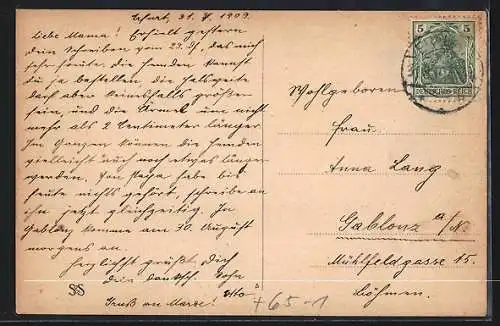 Erfurt, 31. 7. 1909.
Liebe Mama! Erhielt gestern
Dein Schreiben vom 29. d., das mich
sehr freute. Die Hemden kannst
du ja bestellen die Halsweite
darf aber keinesfalls größer
sein, und die Ärmel um nicht
mehr als 2 Centimeter länger.
Im Ganzen können die Hemden
vielleicht auch noch etwas länger
werden. Von Papa habe bis
heute nichts gehört, schreibe an
ihn jetzt gleichzeitig. In
Gablonz komme am 30. August
morgens an.
Herzlichst grüßt Dich
dein dankb. Sohn
Otto
Gruß an
+65-1
5 5
DEUTSCHES REICH
Wohlgeboren
Frau
Anna Lang
Gablonz a/N.
Mühlfeldgasse 15.
Böhmen.